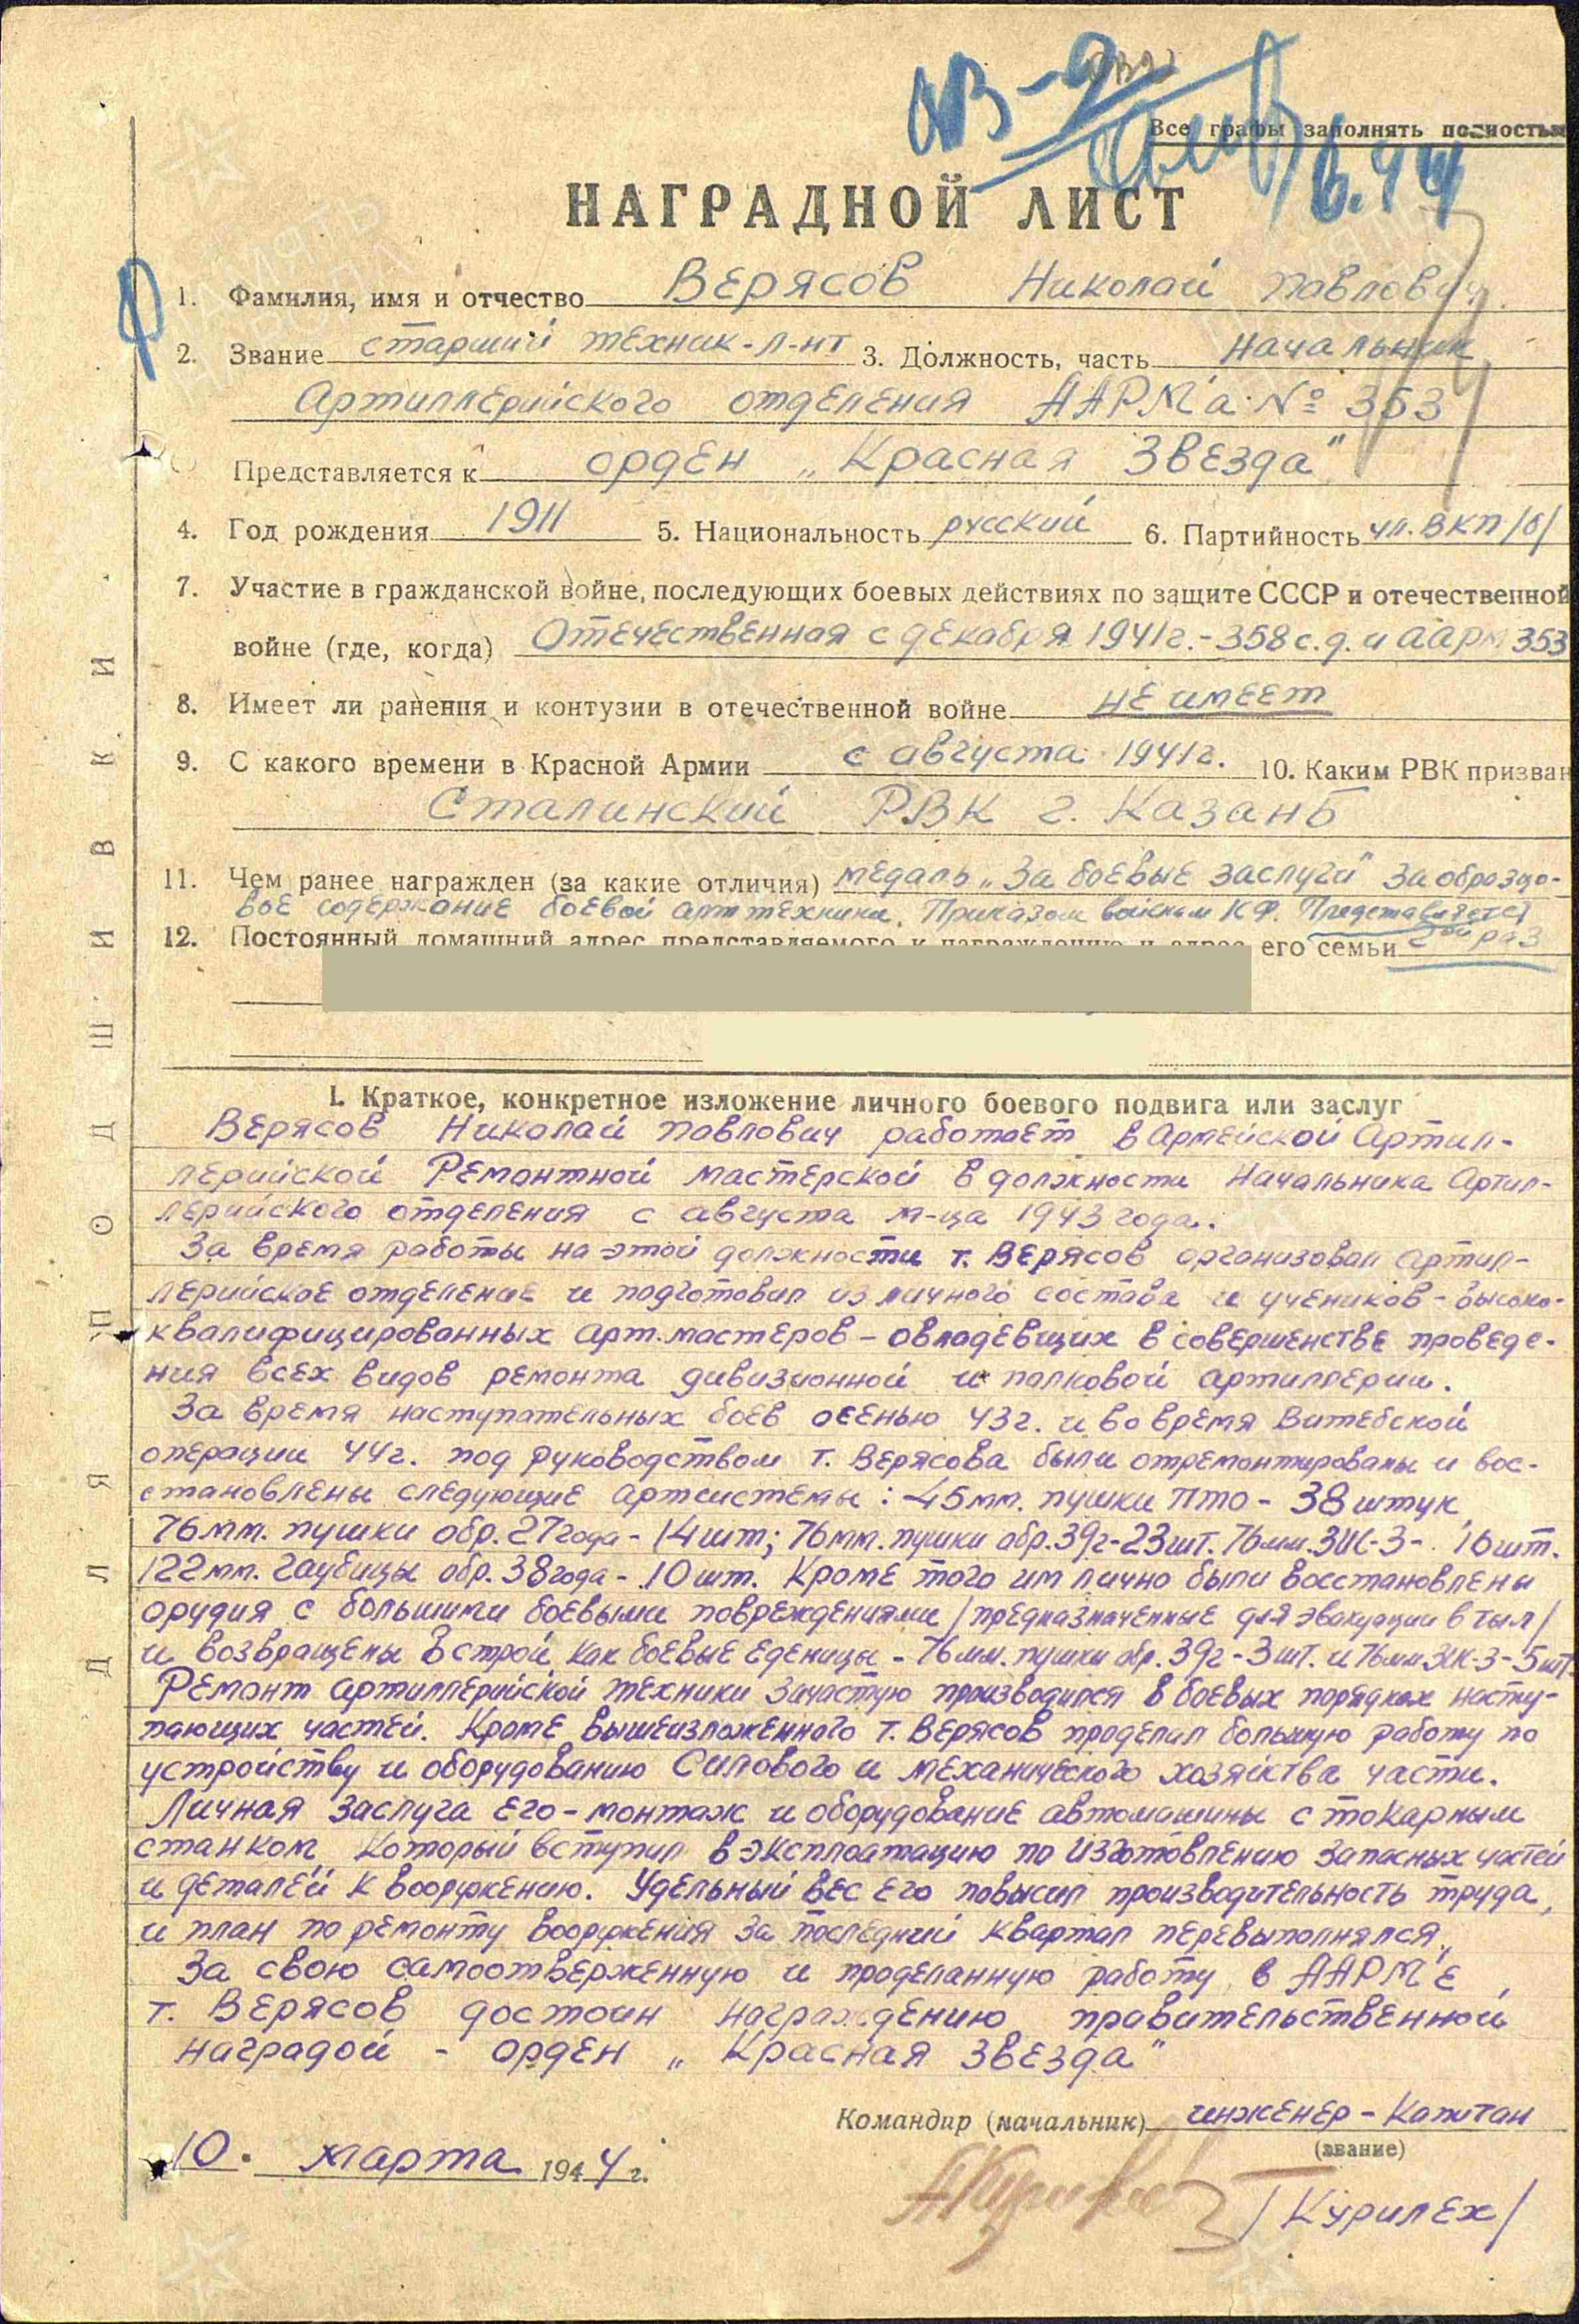 ОВ-2
Все графы заполнять полностью
6.44
НАГРАДНОЙ ЛИСТ
1. Фамилия, имя и отчество Верясов Николай Павлович
2. Звание старший техник-л-нт 3. Должность, часть Начальник
Артиллерийского отделения ААРМ'а № 353
Представляется к орден „Красная Звезда"
4. Год рождения 1911 5. Национальность русский 6. Партийность чл. ВКП/б/
7. Участие в гражданской войне, последующих боевых действиях по защите СССР и отечественной
войне (где, когда) Отечественная с декабря 1941г.-358 с.д. и ААРМ 353
8. Имеет ли ранения и контузии в отечественной войне не имеет
9. С какого времени в Красной Армии с августа 1941г. 10. Каким РВК призван
Сталинский РВК г. Казань
11. Чем ранее награжден (за какие отличия) медаль „За боевые заслуги" за образцо-
вое содержание боевой арттехники. Приказом войскам КФ. Представляется
12. Постоянный домашний адрес представляемого к награждению и адрес его семьи 2ой раз
I. Краткое, конкретное изложение личного боевого подвига или заслуг
Верясов Николай Павлович работает в Армейской Артил-
лерийской Ремонтной мастерской в должности Начальника Артил-
лерийского отделения с августа м-ца 1943 года.
За время работы на этой должности т. Верясов организовал артил-
лерийское отделение и подготовил из личного состава и учеников - высоко-
квалифицированных арт. мастеров - овладевших в совершенстве проведе-
ния всех видов ремонта дивизионной и полковой артиллерии.
За время наступательных боев осенью 43г. и во время Витебской
операции 44г. под руководством т. Верясова были отремонтированы и вос-
становлены следующие артсистемы: 45мм. пушки ПТО - 38 штук,
76мм. пушки обр. 27 года - 14 шт; 76мм. пушки обр. 39г-23 шт. 76мм. ЗИС-3- 16 шт.
122мм. гаубицы обр. 38 года - 10 шт. Кроме того им лично были восстановлены
орудия с большими боевыми повреждениями /предназначенные для эвакуации в тыл/
и возвращены в строй как боевые еденицы - 76мм. пушки обр. 39г - 3 шт. и 76мм ЗИС-3-5 шт.
Ремонт артиллерийской техники зачастую производился в боевых порядках насту-
пающих частей. Кроме вышеизложенного т. Верясов проделал большую работу по
устройству и оборудованию Силового и механического хозяйства части.
Личная заслуга его - монтаж и оборудование автомашины с токарным
станком который вступил в эксплоатацию по изготовлению запасных частей
и деталей к вооружению. Удельный вес его повысил производительность труда,
и план по ремонту вооружения за последний квартал перевыполнялся.
За свою самоотверженную и проделанную работу в ААРМ'е,
т. Верясов достоин награждению правительственной
наградой - орден „Красная Звезда"
Командир (начальник) инженер-капитан
(звание)
10. марта 1944 г.
/Курилех/
ДЛЯ ПОДШИВКИ